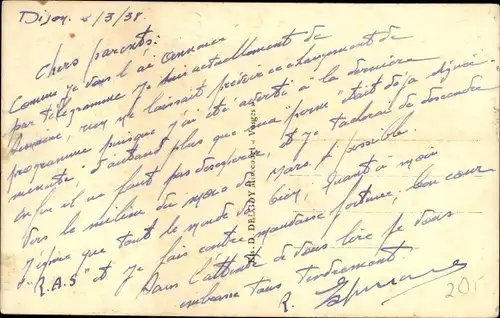 Dijon, 2/3/38.
Chers parents:
Comme je vous l'ai annoncé
par télégramme je suis actuellement de
semaine, rien ne laissait prévoir ce changement de
programme puisque j'ai été averti à la dernière
minute, d'autant plus que ma "perm" était déjà signée.
Enfin il ne faut pas désespérer, et je tacherai de descendre
vers le milieu du mois de Mars, si possible.
J'espère que tout le monde va bien, Quant à moi
"R.A.S" et je fais contre mauvaise fortune, bon cœur
Dans l'attente de vous lire je vous
embrasse tous tendrement.
R.
D. DELBOY, Mirecourt - Vosges
20F